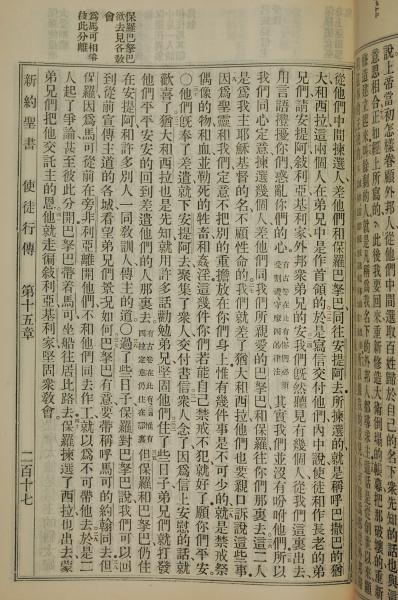 說上帝當初怎樣眷顧外邦人從他們中間選取百姓歸於自己的名下衆先知的話也與這
意思相合正如經上所寫的此後我要回來重新修造大衛倒塌的帳幕把那破壞的重新
修造建立起來
從他們中間揀選人差他們和保羅巴拏巴同往安提阿去所揀選的就是稱呼巴撒巴的猶
大和西拉這兩個人在弟兄中是作首領的於是寫信交付他們內中說使徒和作長老的弟
兄們請安提阿敍利亞基利家外邦衆弟兄的安我們旣然聽見有幾個人從我們這裏出去
用言語攪擾你們惑亂你們的心有古卷在此有你們必須受割禮守摩西的律法其實我們並沒有吩咐他們所以
我們同心定意揀選幾個人差他們同我們所親愛的巴拏巴和保羅往你們那裏去這二人
是爲我主耶穌基督的名不顧性命的我們就差了猶大和西拉他們也要親口訴說這些事
因爲聖靈和我們定意不把別的重擔放在你們身上惟有幾件事是不可少的就是禁戒祭
偶像的物和血並勒死的牲畜和姦淫這幾件你們若能自己禁戒不犯就好了願你們平安
○他們旣奉了差遣就下安提阿去聚集了衆人交付書信衆人念了因爲信上安慰的話就
歡喜了猶大和西拉也是先知就用許多話勸勉弟兄堅固他們住了些日子弟兄們就打發
他們平平安安的回到差遣他們的人那裏去有古卷在此有惟有西拉定意仍住在那裏但保羅和巴拏巴仍住
在安提阿和許多別人一同敎訓人傳主的道○過了些日子保羅對巴拏巴說我們可以回
到從前宣傳主道的各城看望弟兄們景況如何巴拏巴有意要帶稱呼馬可的約翰同去但
保羅因爲馬可從前在旁非利亞離開他們不和他們同去作工就以爲不可帶他去於是二
人起了爭論甚至彼此分開巴拏巴帶着馬可坐船往居比路去保羅揀選了西拉也出去蒙
弟兄們把他交託主的恩他就走徧敍利亞基利家堅固衆敎會
保羅巴拏巴
欲去見各敎
會
爲馬可相爭
彼此分離
新約聖書 使徒行傳 第十五章 二百十七